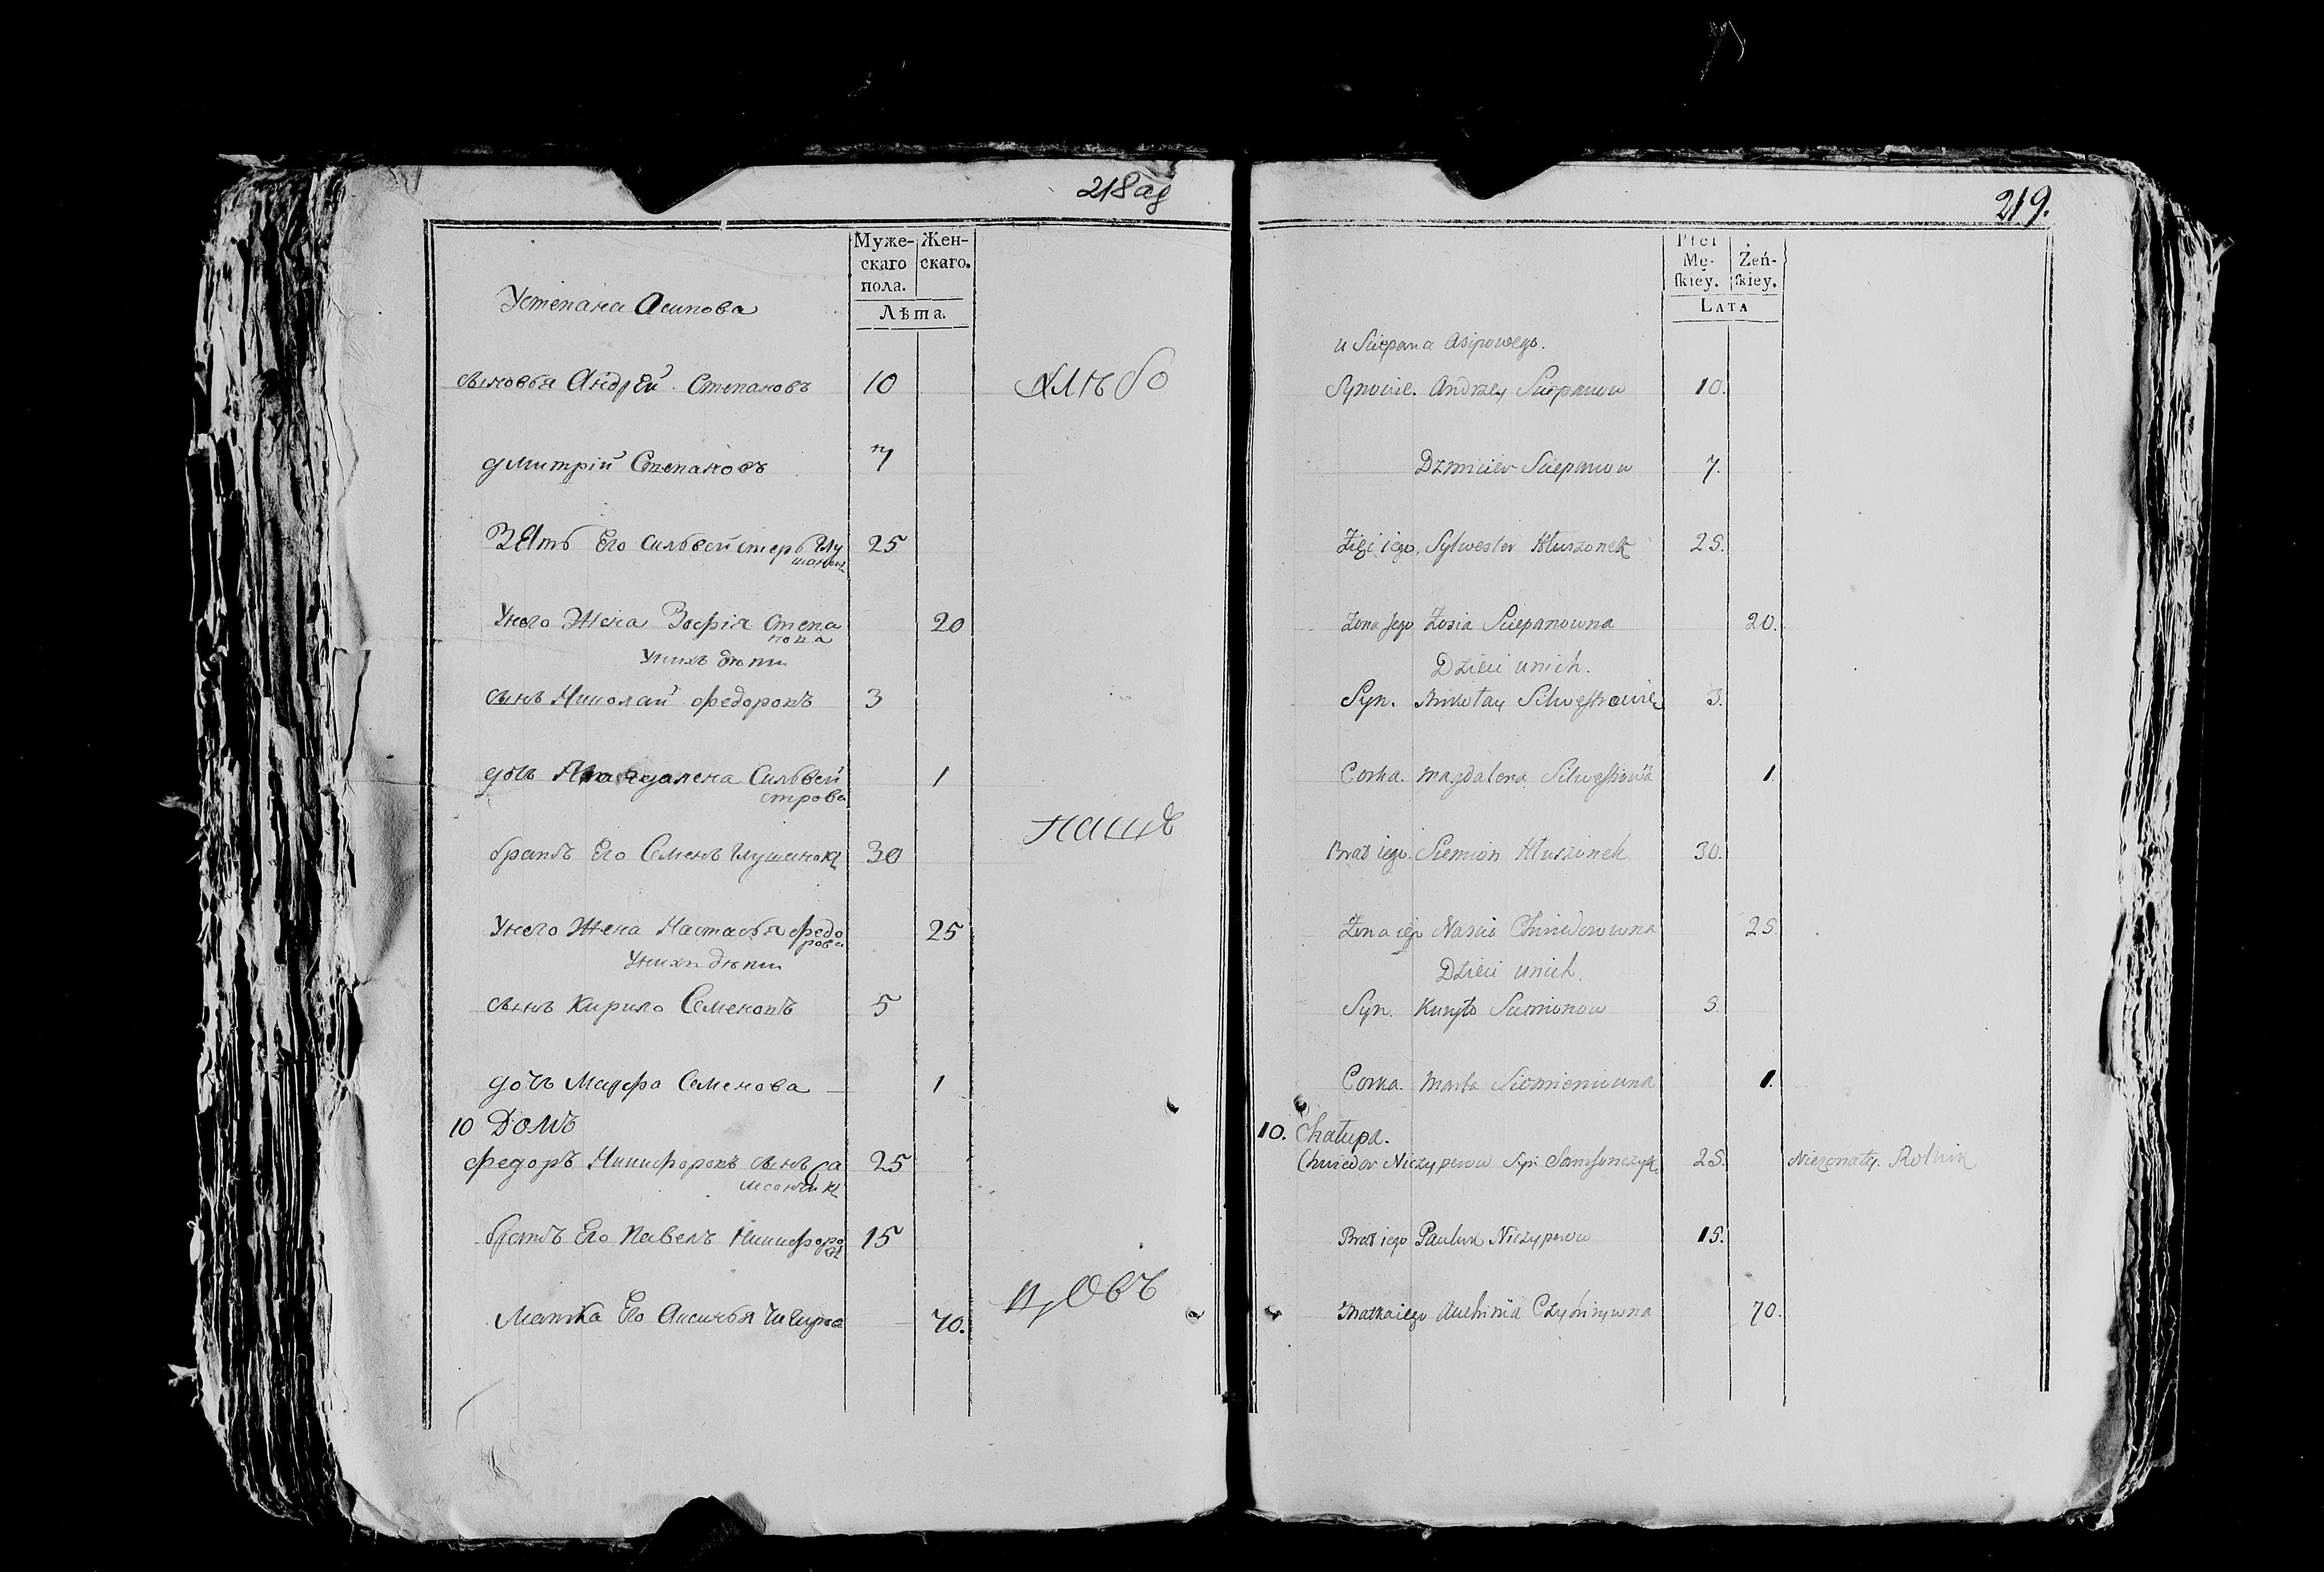 218 аg
Муже-
скаго
пола.
Жен-
скаго.
Лѣта.
Устепана Асипова
сыновья Андрей Степановъ 10
хлѣбо
дмитрій Степановъ 7
Зять Его Сильвейстеръ Глу
шонокъ 25
Унего Жена Зофія Степа
нова 20
Унихъ дѣти
сынъ Николай федоровъ 3
дочь Магдалена Сильвей
строва 1
пашъ
братъ Его Семенъ Глушонокъ 30
Унего Жена Настасья федо
рова 25
Унихъ дѣти
сынъ Кирило Семеновъ 5
дочь Марфа Семенова 1
10 Домъ
федоръ Никифоровъ сынъ Са
мсончикъ 25
братъ Его Павелъ Никифоро
въ 15
Матка Его Аксинья 70.
219.
Płci
Mę-
skiey.
Żeń-
skiey.
Lata
u Sciepana Asipowego.
Synowie. Andrzey Sciepanow 10.
Dzmicier Sciepanow 7.
Zięć iego, Sylwester Hłuszonek 25.
Zona Jego Zosia Sciepanowna 20.
Dzieci unich.
Syn. Mikołay 3.
Corka. Magdalena 1.
Brat iego. Siemion Hłuszonek 30.
Zona iego Nascia Chwiedorowna 25.
Dzieci unich.
Syn. Kuryło Siemionow 5
Corka. Marta 1.
10. Chałupa.
Chwiedor Niczyperow Syn Samsonczyk 25. Nieżonaty. Rolnik
Brat iego Pauluk Niczyperow 15.
Matka iego Auhinia 70.